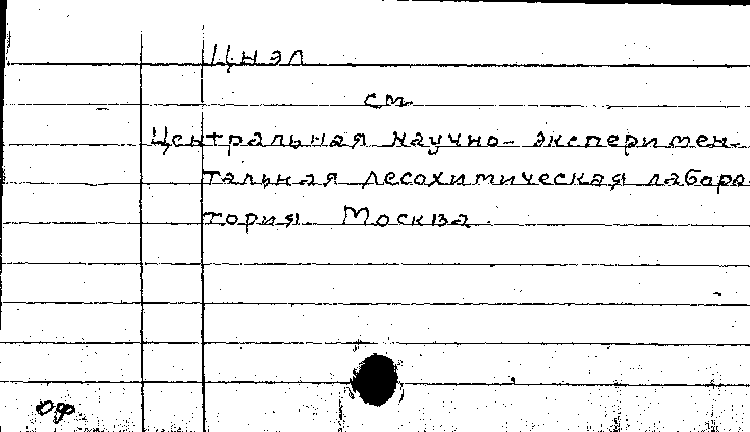 ЦНЭЛ
см.
Центральная научно-эксперимен-
тальная лесохимическая лабора
тория. Москва.
ОФ